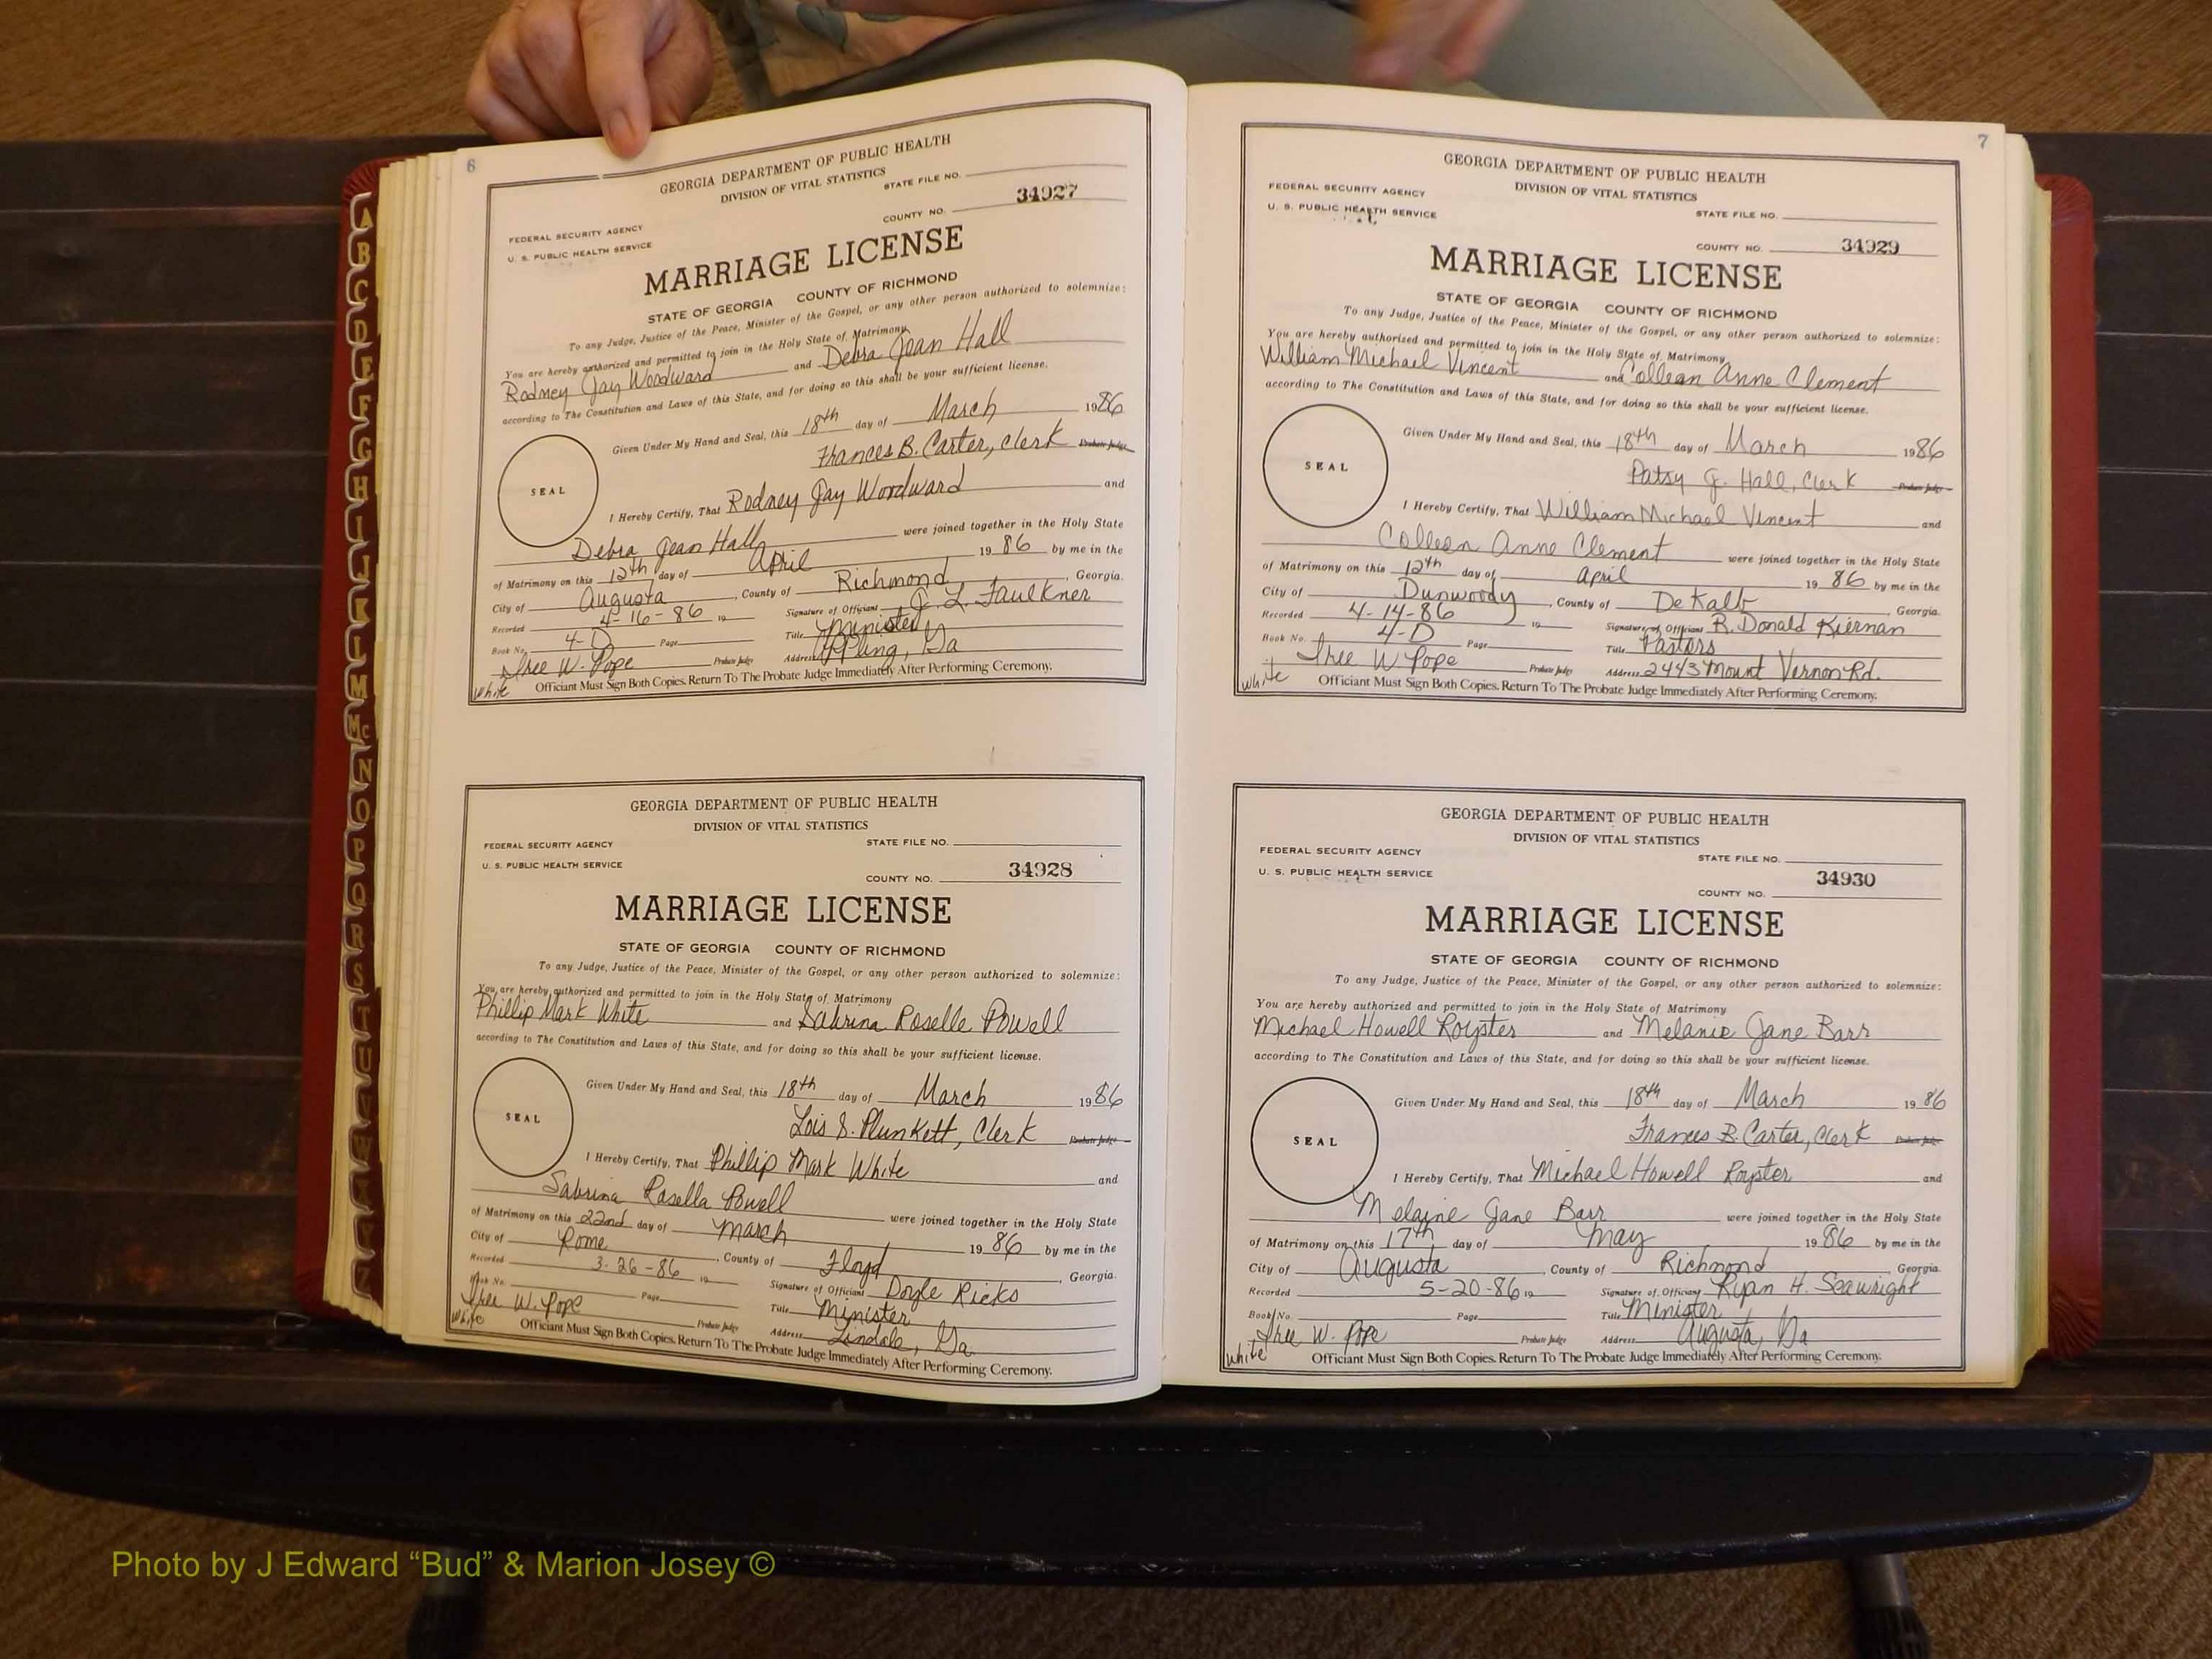 6
GEORGIA DEPARTMENT OF PUBLIC HEALTH
DIVISION OF VITAL STATISTICS
STATE FILE NO.
COUNTY NO. 34927
FEDERAL SECURITY AGENCY
U. S. PUBLIC HEALTH SERVICE
MARRIAGE LICENSE
STATE OF GEORGIA COUNTY OF RICHMOND
To any Judge, Justice of the Peace, Minister of the Gospel, or any other person authorized to solemnize:
You are hereby authorized and permitted to join in the Holy State of Matrimony
Rodney Jay Woodward and Debra Jean Hall
according to The Constitution and Laws of this State, and for doing so this shall be your sufficient license.
Given Under My Hand and Seal, this 18th day of March 1986
Frances B. Carter, Clerk Probate Judge
SEAL
I Hereby Certify, That Rodney Jay Woodward and
Debra Jean Hall were joined together in the Holy State
of Matrimony on this 12th day of April 19 86 by me in the
City of Augusta, County of Richmond, Georgia.
Recorded 4-16-86 19 Signature of Officiant J. L. Faulkner
Book No. 4-D Page Title Minister
Probate Judge Address Appling, Ga
W. Pope
White Officiant Must Sign Both Copies. Return To The Probate Judge Immediately After Performing Ceremony.
GEORGIA DEPARTMENT OF PUBLIC HEALTH
DIVISION OF VITAL STATISTICS
FEDERAL SECURITY AGENCY STATE FILE NO.
U. S. PUBLIC HEALTH SERVICE
COUNTY NO. 34928
MARRIAGE LICENSE
STATE OF GEORGIA COUNTY OF RICHMOND
To any Judge, Justice of the Peace, Minister of the Gospel, or any other person authorized to solemnize:
You are hereby authorized and permitted to join in the Holy State of Matrimony
Phillip Mark White and Sabrina Roselle Powell
according to The Constitution and Laws of this State, and for doing so this shall be your sufficient license.
Given Under My Hand and Seal, this 18th day of March 1986
Lois S. Plunkett, Clerk Probate Judge
SEAL
I Hereby Certify, That Phillip Mark White and
Sabrina Rosella Powell were joined together in the Holy State
of Matrimony on this 22nd day of March 19 86 by me in the
City of Rome, County of Floyd, Georgia.
Recorded 3-26-86 19 Signature of Officiant Doyle Ricks
Book No. Page Title Minister
W. Pope Probate Judge Address Lindale, Ga
White Officiant Must Sign Both Copies. Return To The Probate Judge Immediately After Performing Ceremony.
7
GEORGIA DEPARTMENT OF PUBLIC HEALTH
DIVISION OF VITAL STATISTICS
FEDERAL SECURITY AGENCY
U. S. PUBLIC HEALTH SERVICE STATE FILE NO.
COUNTY NO. 34929
MARRIAGE LICENSE
STATE OF GEORGIA COUNTY OF RICHMOND
To any Judge, Justice of the Peace, Minister of the Gospel, or any other person authorized to solemnize:
You are hereby authorized and permitted to join in the Holy State of Matrimony
William Michael Vincent and Colleen Anne Clement
according to The Constitution and Laws of this State, and for doing so this shall be your sufficient license.
Given Under My Hand and Seal, this 18th day of March 1986
Patsy J. Hall, Clerk Probate Judge
SEAL
I Hereby Certify, That William Michael Vincent and
Colleen Anne Clement were joined together in the Holy State
of Matrimony on this 12th day of April 19 86 by me in the
City of Dunwoody, County of DeKalb, Georgia.
Recorded 4-14-86 19 Signature of Officiant R. Donald Kiernan
Book No. 4-D Page Title Pastors
W Pope Probate Judge Address 2443 Mount Vernon Rd.
White Officiant Must Sign Both Copies. Return To The Probate Judge Immediately After Performing Ceremony.
GEORGIA DEPARTMENT OF PUBLIC HEALTH
DIVISION OF VITAL STATISTICS
FEDERAL SECURITY AGENCY STATE FILE NO.
U. S. PUBLIC HEALTH SERVICE
COUNTY NO. 34930
MARRIAGE LICENSE
STATE OF GEORGIA COUNTY OF RICHMOND
To any Judge, Justice of the Peace, Minister of the Gospel, or any other person authorized to solemnize:
You are hereby authorized and permitted to join in the Holy State of Matrimony
Michael Howell Royster and Melanie Jane Barr
according to The Constitution and Laws of this State, and for doing so this shall be your sufficient license.
Given Under My Hand and Seal, this 18th day of March 19 86
Frances B. Carter, Clerk Probate Judge
SEAL
I Hereby Certify, That Michael Howell Royster and
Melaine Jane Barr were joined together in the Holy State
of Matrimony on this 17th day of May 19 86 by me in the
City of Augusta, County of Richmond, Georgia.
Recorded 5-20-86 19 Signature of Officiant Ryan H. Seawright
Book No. Page Title Minister
W. Pope Probate Judge Address Augusta, Ga
White Officiant Must Sign Both Copies. Return To The Probate Judge Immediately After Performing Ceremony.
Photo by J Edward “Bud” & Marion Josey ©